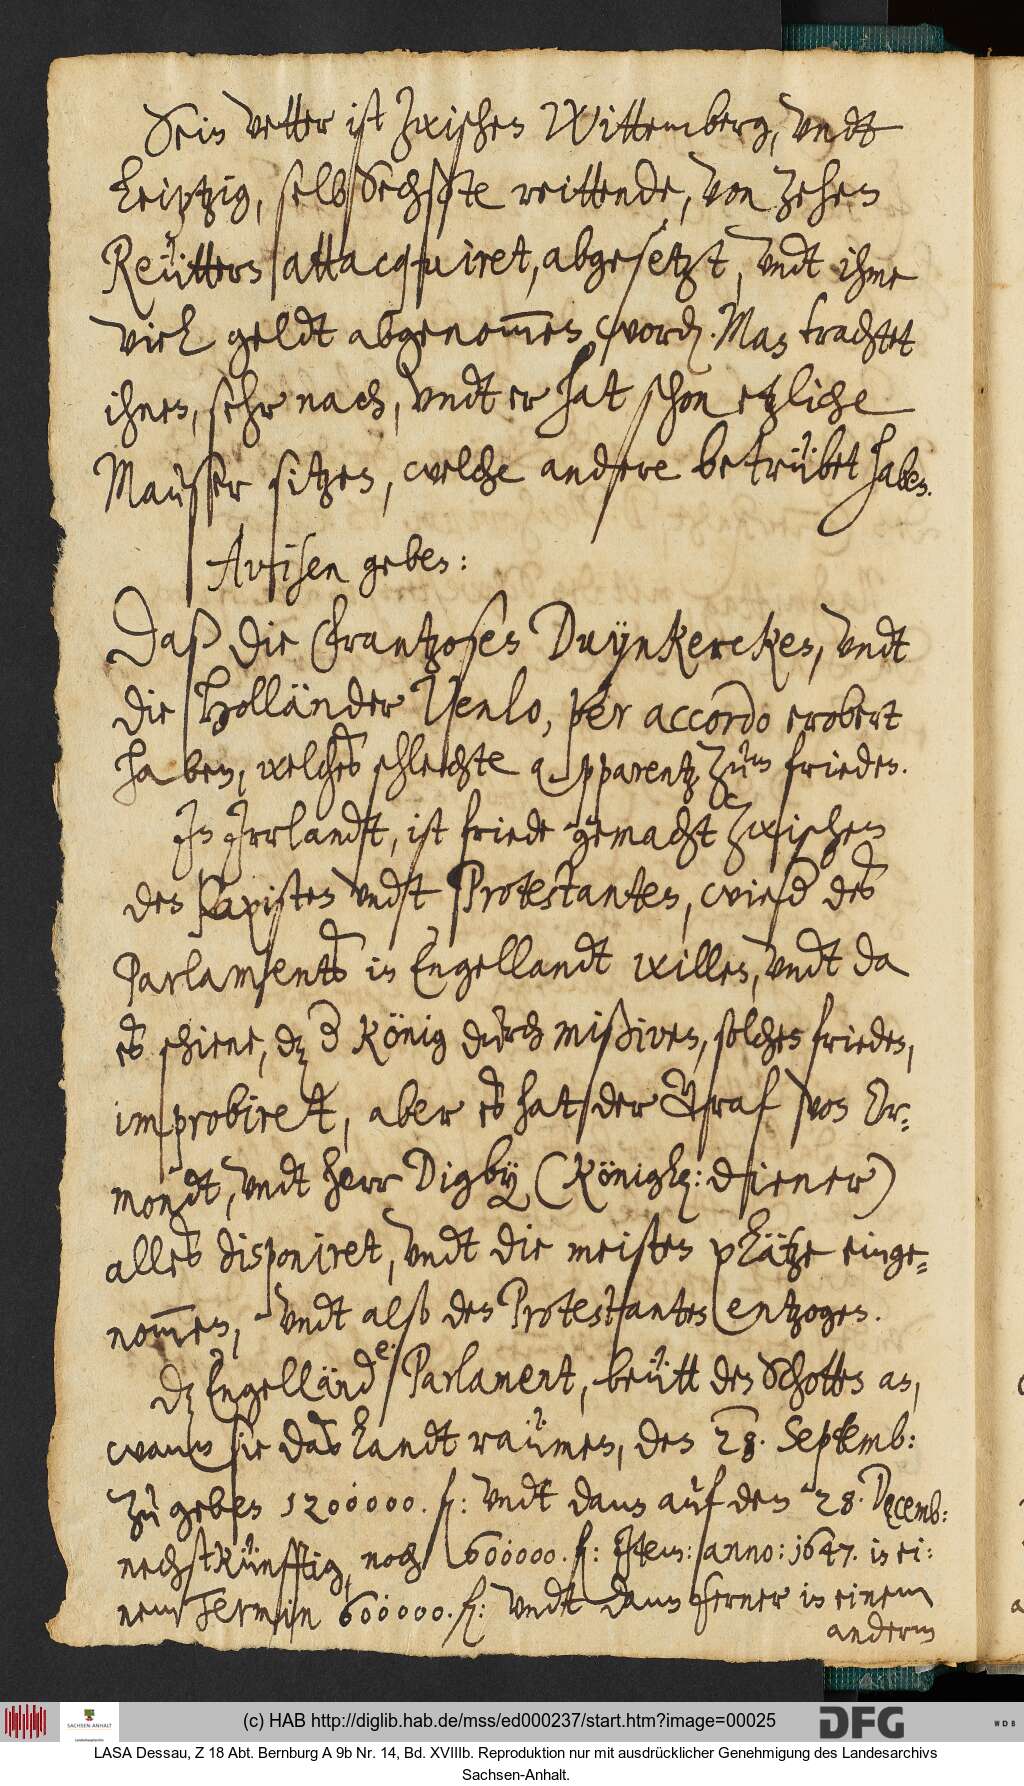 Sein vetter ist zwischen Wittemberg, vndt
Leiptzig, selb Sechßte reittende, von zehen
Reüttern attacquiret, abgesetzt, vndt ihme
viel geldt abgenom̅en word. Man trachtet
ihnen, sehr nach, vndt er hat schon etzliche
Mauser sitzen, welche andere betrübet haben.
Avisen geben:
Daß die Frantzosen Duÿnkercken, vndt
die Holländer Venlo, per accordo erobert
haben, welches schlechte apparentz zum frieden.
In Irrlandt, ist friede gemacht zwischen
den Papisten vndt Protestanten, wied des
Parlaments in Engellandt willen, vndt da
es schiene, dz d König durch mißiven, solchen frieden,
improbiret, aber es hat der Graf von Or-
mondt, vndt herr Digbÿ (Königl: diener)
alles disponiret, vndt die meisten plätze einge-
nom̅en, vndt also den Protestanten entzogen.
Dz Engelländ e: Parlament, beütt den Schotten an,
wann sie das Landt raümen, den 28. Septemb:
zu geben 1200000. fl: vndt dann auf den 28. Decemb:
nechstkünfftig, noch 600000. fl: Item: anno: 1647. in ei-
nem Termin 600000. fl: vndt dann ferner in einem
anderm
(c) HAB http://diglib.hab.de/mss/ed000237/start.htm?image=00025
SACHSEN-ANHALT
DFG
WDB
LASA Dessau, Z 18 Abt. Bernburg A 9b Nr. 14, Bd. XVIIIb. Reproduktion nur mit ausdrücklicher Genehmigung des Landesarchivs
Sachsen-Anhalt.